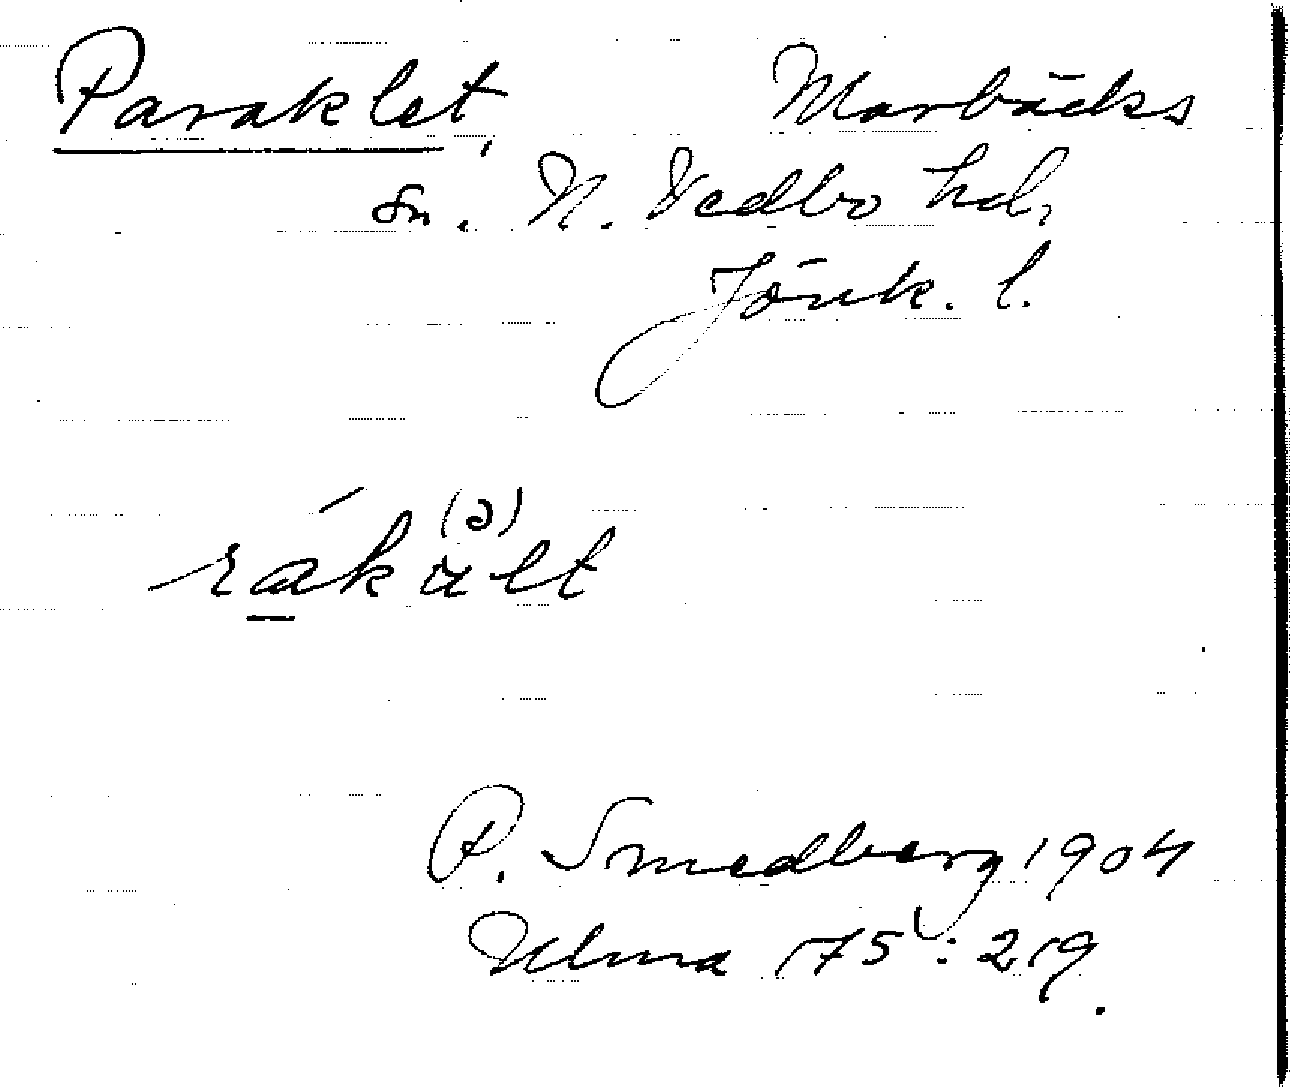 Paraklet, Marbäcks
sn. N. Vedbo hd,
Jönk. l.
(ə)
rákält
P. Smedberg 1904
Ulma 175: 219.